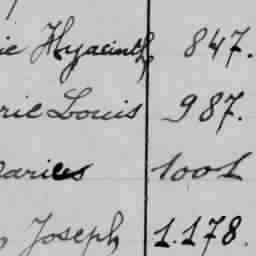 ie Hyacinth 847.
rie Louis 987.
aries 1001
Joseph 1.178.